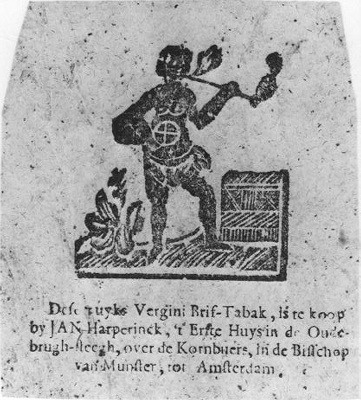 Dese puyks Vergini Brif-Tabak, is te koop
by JAN Harperinck, 't Erste Huys in de Oude-
brugh-steegh, over de Kornbuers, in de Bisschop
van Munster, tot Amsterdam.